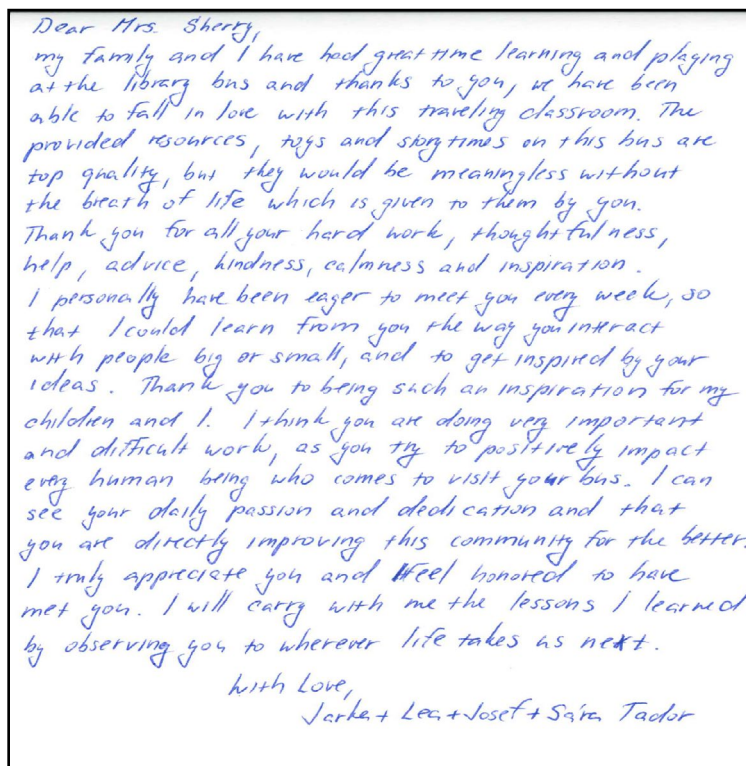 Dear Mrs. Sherry,
my family and I have had great time learning and playing
at the library bus and thanks to you, we have been
able to fall in love with this traveling classroom. The
provided resources, toys and storytimes on this bus are
top quality, but they would be meaningless without
the breath of life which is given to them by you.
Thank you for all your hard work, thoughtfulness,
help, advice, kindness, calmness and inspiration.
I personally have been eager to meet you every week, so
that I could learn from you the way you interact
with people big or small, and to get inspired by your
ideas. Thank you to being such an inspiration for my
children and I. I think you are doing very important
and difficult work, as you try to positively impact
every human being who comes to visit your bus. I can
see your daily passion and dedication and that
you are directly improving this community for the better.
I truly appreciate you and feel honored to have
met you. I will carry with me the lessons I learned
by observing you to wherever life takes us next.
With Love,
Jarka + Lea + Josef + Sára Tador